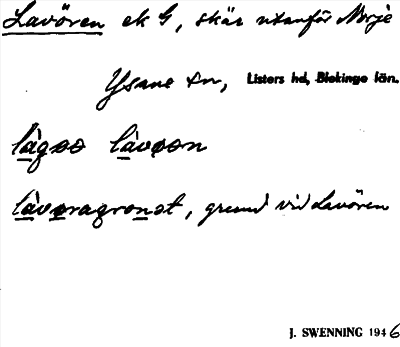 Lavören ek G, skär utanför Norje
Ysane sn, Listers hd, Blekinge län.
làgəə làvøən
làvøragronət, grund vid Lavören
J. SWENNING 1946